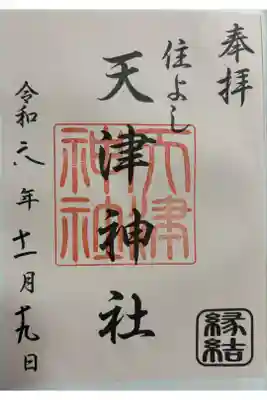 奉拝
住よし
天津神社
天津
神社
縁結
令和六年十一月十九日